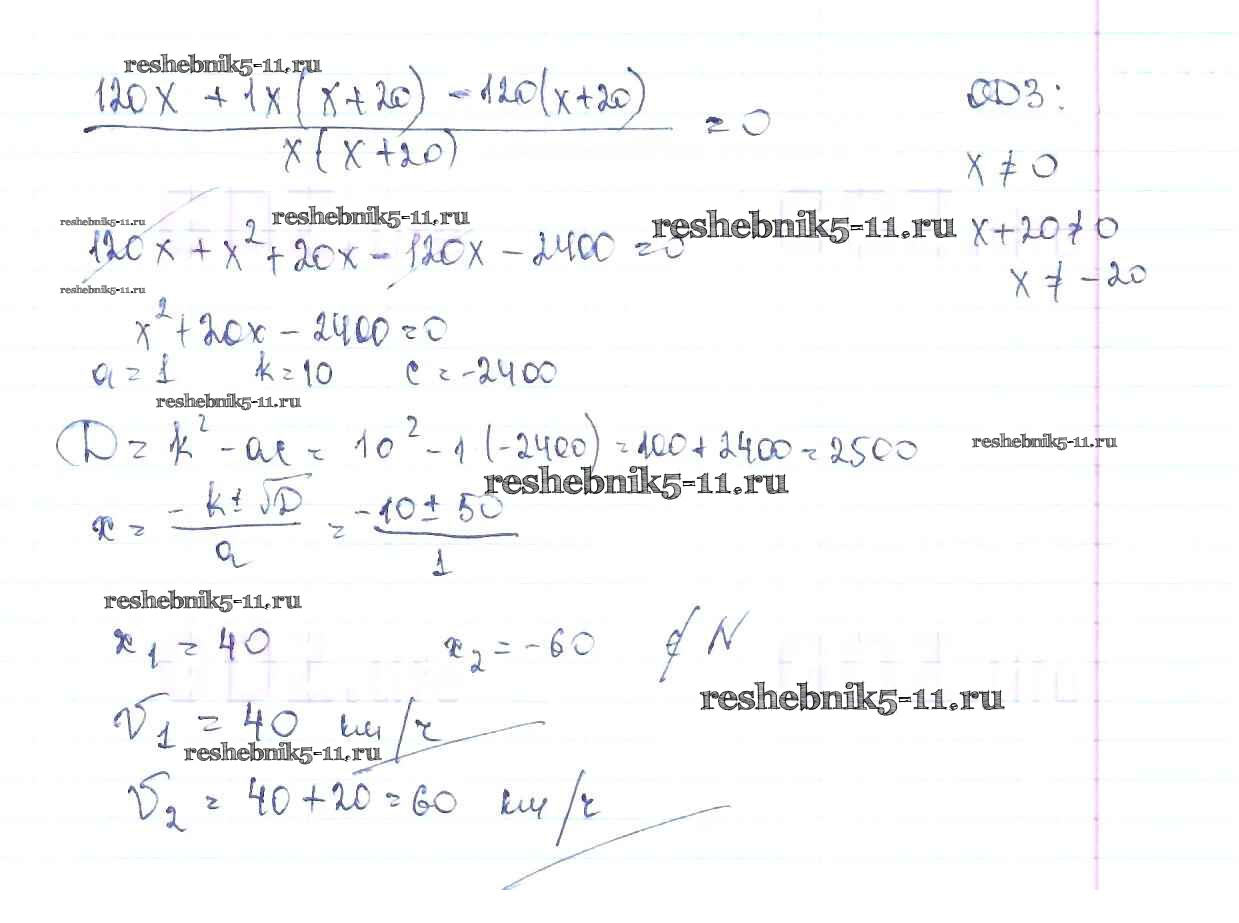 reshebnik5-11.ru
120x + 1x(x+20) - 120(x+20) / x(x+20) = 0
ОДЗ:
x ≠ 0
reshebnik5-11.ru reshebnik5-11.ru reshebnik5-11.ru
x+20≠0
120x + x² + 20x - 120x - 2400 = 0
x ≠ -20
reshebnik5-11.ru
x² + 20x - 2400 = 0
a = 1 k = 10 c = -2400
reshebnik5-11.ru
D = k² - ac = 10² - 1(-2400) = 100 + 2400 = 2500
reshebnik5-11.ru
reshebnik5-11.ru
x = -k ± √D / a = -10 ± 50 / 1
reshebnik5-11.ru
x₁ = 40 x₂ = -60 ∉ N
reshebnik5-11.ru
V₁ = 40 км/ч
reshebnik5-11.ru
V₂ = 40 + 20 = 60 км/ч